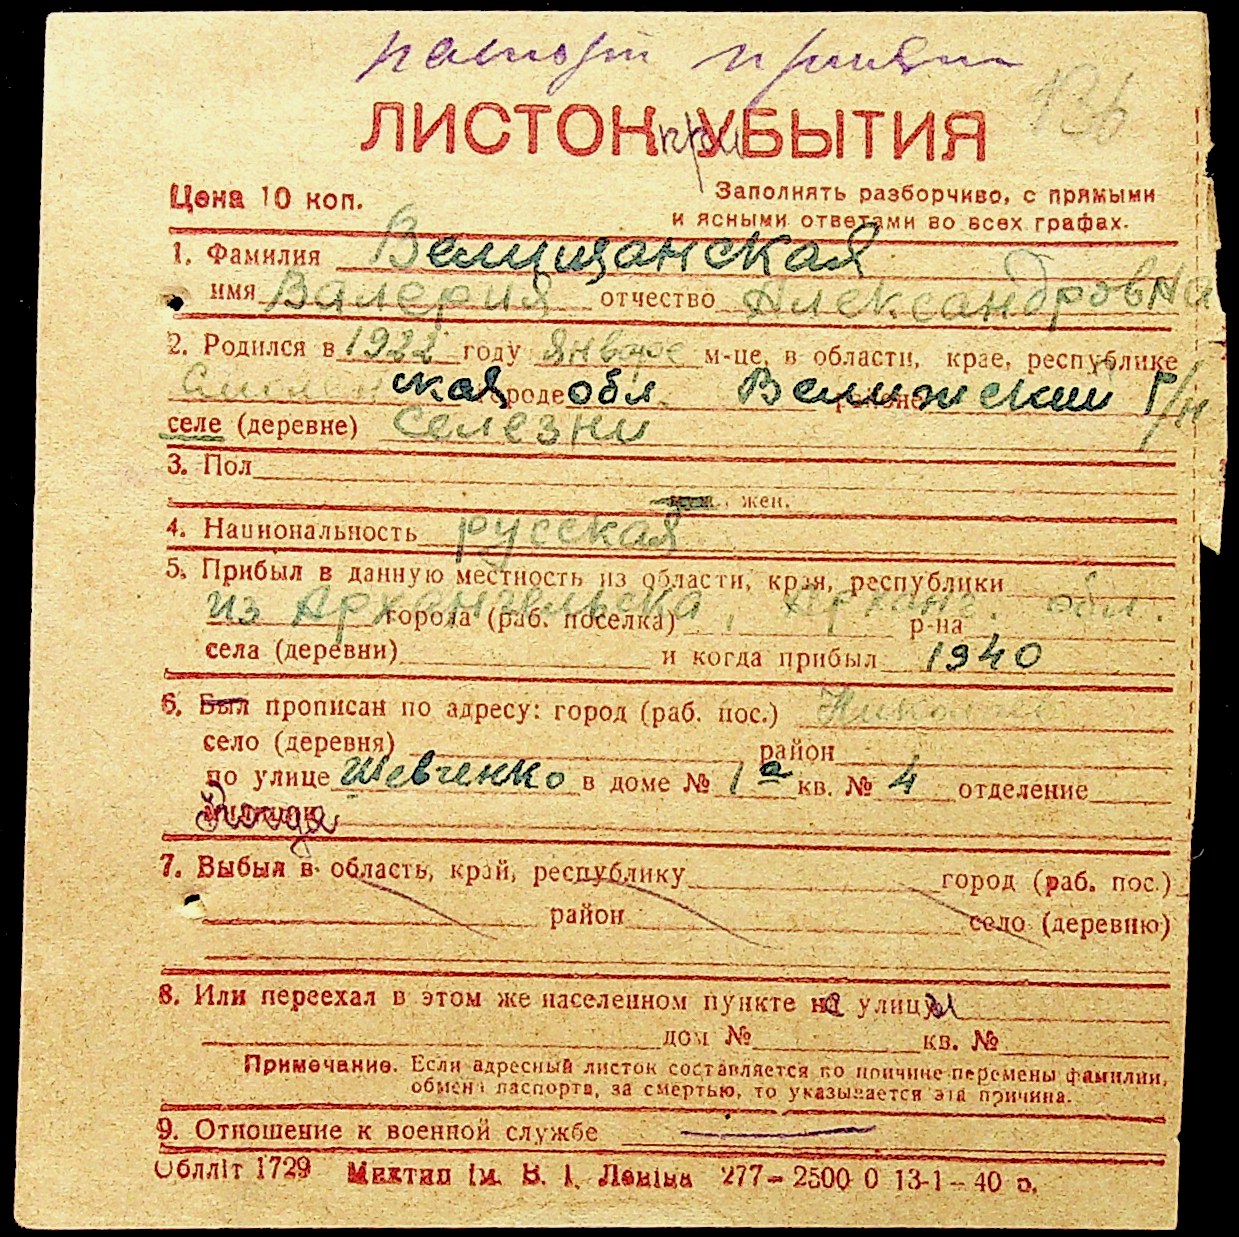 136
ЛИСТОК при УБЫТИЯ
Цена 10 коп.
Заполнять разборчиво, с прямыми
и ясными ответами во всех графах.
1. Фамилия Велищанская
имя Валерия отчество Александровна
2. Родился в 1922 году январе м-це, в области, крае, республике
Смоленская городе обл. Велижский районе р/н
селе (деревне) Селезни
3. Пол
муж., жен.
4. Национальность русская
5. Прибыл в данную местность из области, края, республики
из Архангельска, Арханг. обл.
города (раб. поселка) р-на
села (деревни) и когда прибыл 1940
6. Был прописан по адресу: город (раб. пос.)
село (деревня) район
по улице Шевченко в доме № 1а кв. № 4 отделение
милиции
7. Выбыл в область, край, республику город (раб. пос.)
район село (деревню)
8. Или переехал в этом же населенном пункте на улицу
дом № кв. №
Примечание. Если адресный листок составляется по причине перемены фамилии,
обмена паспорта, за смертью, то указывается эта причина.
9. Отношение к военной службе —
Облліт 1729 Миктип ім. В. І. Леніна 277–2500 0 13-1–40 р.